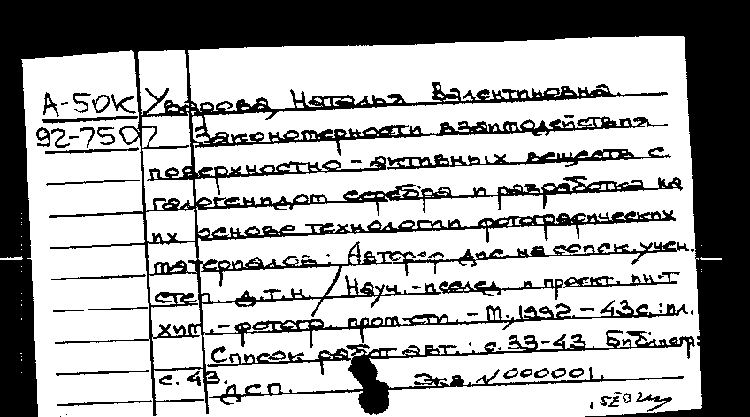 А-50К Уварова, Наталья Валентиновна.
92-7507 Закономерности взаимодействия
поверхностно-активных веществ с
галогенидом серебра и разработка на
их основе технологии фотографических
материалов: Автореф. дис. на соиск. учен.
степ. д.т.н. / Науч.-исслед. и проект. ин-т
хим.-фотогр. пром-сти. - М., 1992. - 43 с.: ил.
Список работ авт.: с. 33-43. Библиогр.:
с. 43.
ДСП. Экз. N 000001.